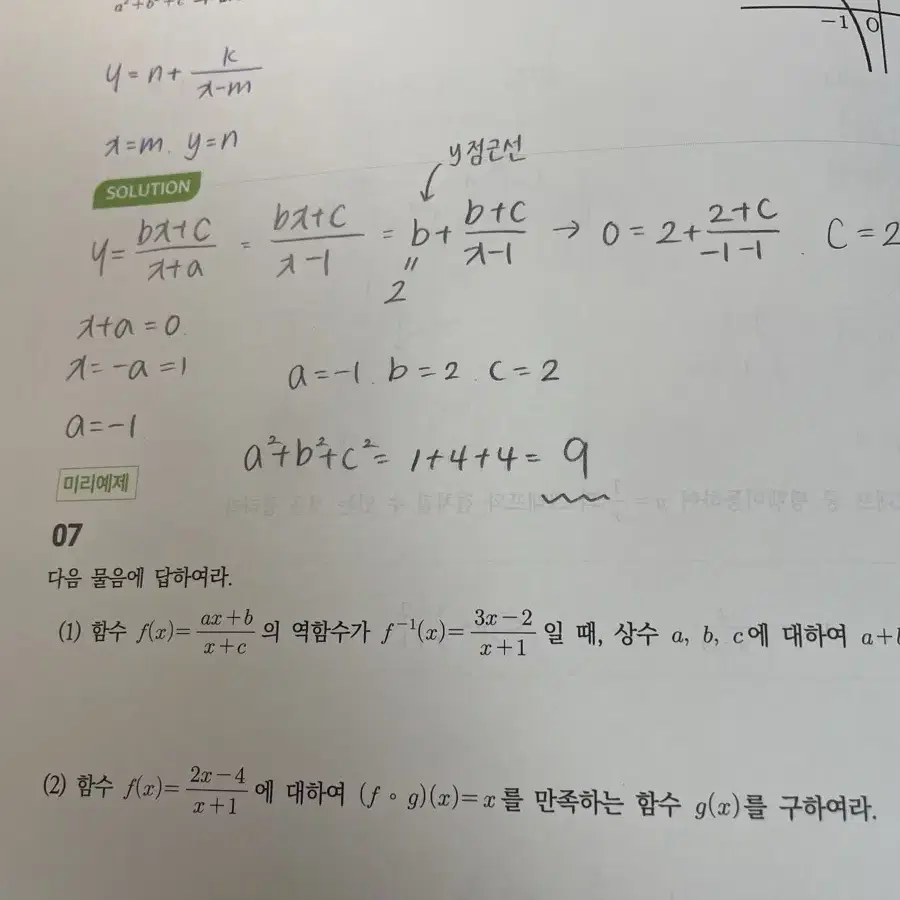 -1 0
y = n + k/(x-m)
x=m. y=n
SOLUTION
y점근선
y = (bx+c)/(x+a) = (bx+c)/(x-1) = b + (b+c)/(x-1) → 0 = 2 + (2+c)/(-1-1) . C=2
"
2
x+a=0.
x=-a=1
a=-1 . b=2 . c=2
a=-1
a²+b²+c²= 1+4+4= 9
미리예제
07
다음 물음에 답하여라.
(1) 함수 f(x)=(ax+b)/(x+c) 의 역함수가 f⁻¹(x)=(3x-2)/(x+1) 일 때, 상수 a, b, c에 대하여 a+b
(2) 함수 f(x)=(2x-4)/(x+1) 에 대하여 (f∘g)(x)=x를 만족하는 함수 g(x)를 구하여라.